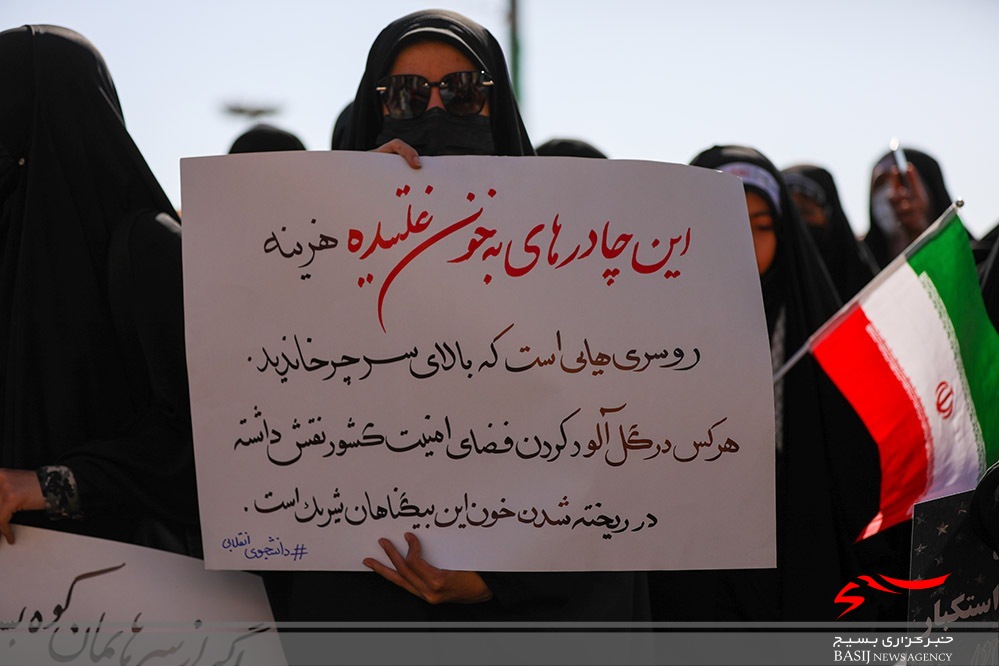 این چادرهای به خون غلتیده هزینه
روسری‌هایی است که بالای سر چرخاندید.
هرکس در گل آلود کردن فضای امنیت کشور نقش داشته
در ریخته شدن خون این بیگناهان شریک است.
#دانشجوی انقلابی
اگر از سرهامان کوه
استکبار
بسیج
خبرگزاری بسیج
BASIJ NEWS AGENCY